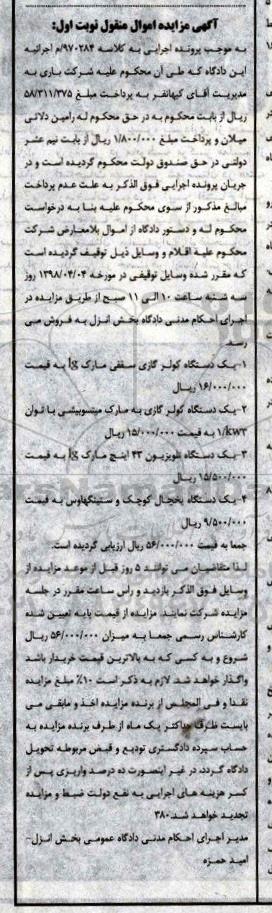 آگهی مزایده اموال منقول نوبت اول:
به موجب پرونده اجرایی به کلاسه ۹۷۰۲۸۴/م اجرائیه
این دادگاه که طی آن محکوم علیه شرکت باری به
مدیریت آقای کیهانفر به پرداخت مبلغ ۵۸/۳۱۱/۳۷۵
ریال از بابت محکوم به در حق محکوم له رامین دلائی
میلان و پرداخت مبلغ ۱/۸۰۰/۰۰۰ ریال از بابت نیم عشر
دولتی در حق صندوق دولت محکوم گردیده است و در
جریان پرونده اجرایی فوق الذکر به علت عدم پرداخت
مبالغ مذکور از سوی محکوم علیه بنا به درخواست
محکوم له و دستور دادگاه از اموال بلامعارض شرکت
محکوم علیه اقلام و وسایل ذیل توقیف گردیده است
که مقرر شده وسایل توقیفی در مورخه ۱۳۹۸/۰۴/۰۴ روز
سه شنبه ساعت ۱۰ الی ۱۱ صبح از طریق مزایده در
اجرای احکام مدنی دادگاه بخش انزل به فروش می
رسد.
۱-یک دستگاه کولر گازی سقفی مارک lg به قیمت
۱۶/۰۰۰/۰۰۰ ریال
۲-یک دستگاه کولر گازی به مارک میتسوبیشی با توان
۱/kw۳ به قیمت ۱۵/۰۰۰/۰۰۰ ریال
۳-یک دستگاه تلویزیون ۴۳ اینچ مارک lg به قیمت
۱۵/۵۰۰/۰۰۰ ریال
۴-یک دستگاه یخچال کوچک و ستینگهاوس به قیمت
۹/۵۰۰/۰۰۰ ریال
جمعا به قیمت ۵۶/۰۰۰/۰۰۰ ریال ارزیابی گردیده است.
لذا متقاضیان می توانند ۵ روز قبل از موعد مزایده از
وسایل فوق الذکر بازدید و راس ساعت مقرر در جلسه
مزایده شرکت نمایند. مزایده از قیمت پایه تعیین شده
کارشناس رسمی جمعا به میزان ۵۶/۰۰۰/۰۰۰ ریال
شروع و به کسی که به بالاترین قیمت خریدار باشد
واگذار خواهد شد. لازم به ذکر است ۱۰٪ مبلغ مزایده
نقدا و فی المجلس از برنده مزایده اخذ و مابقی می
بایست ظرف حداکثر یک ماه از طرف برنده مزایده به
حساب سپرده دادگستری تودیع و قبض مربوطه تحویل
دادگاه گردد، در غیر اینصورت ده درصد واریزی پس از
کسر هزینه های اجرایی به نفع دولت ضبط و مزایده
تجدید خواهد شد. ۳۸۰
مدیر اجرای احکام مدنی دادگاه عمومی بخش انزل-
امید حمزه